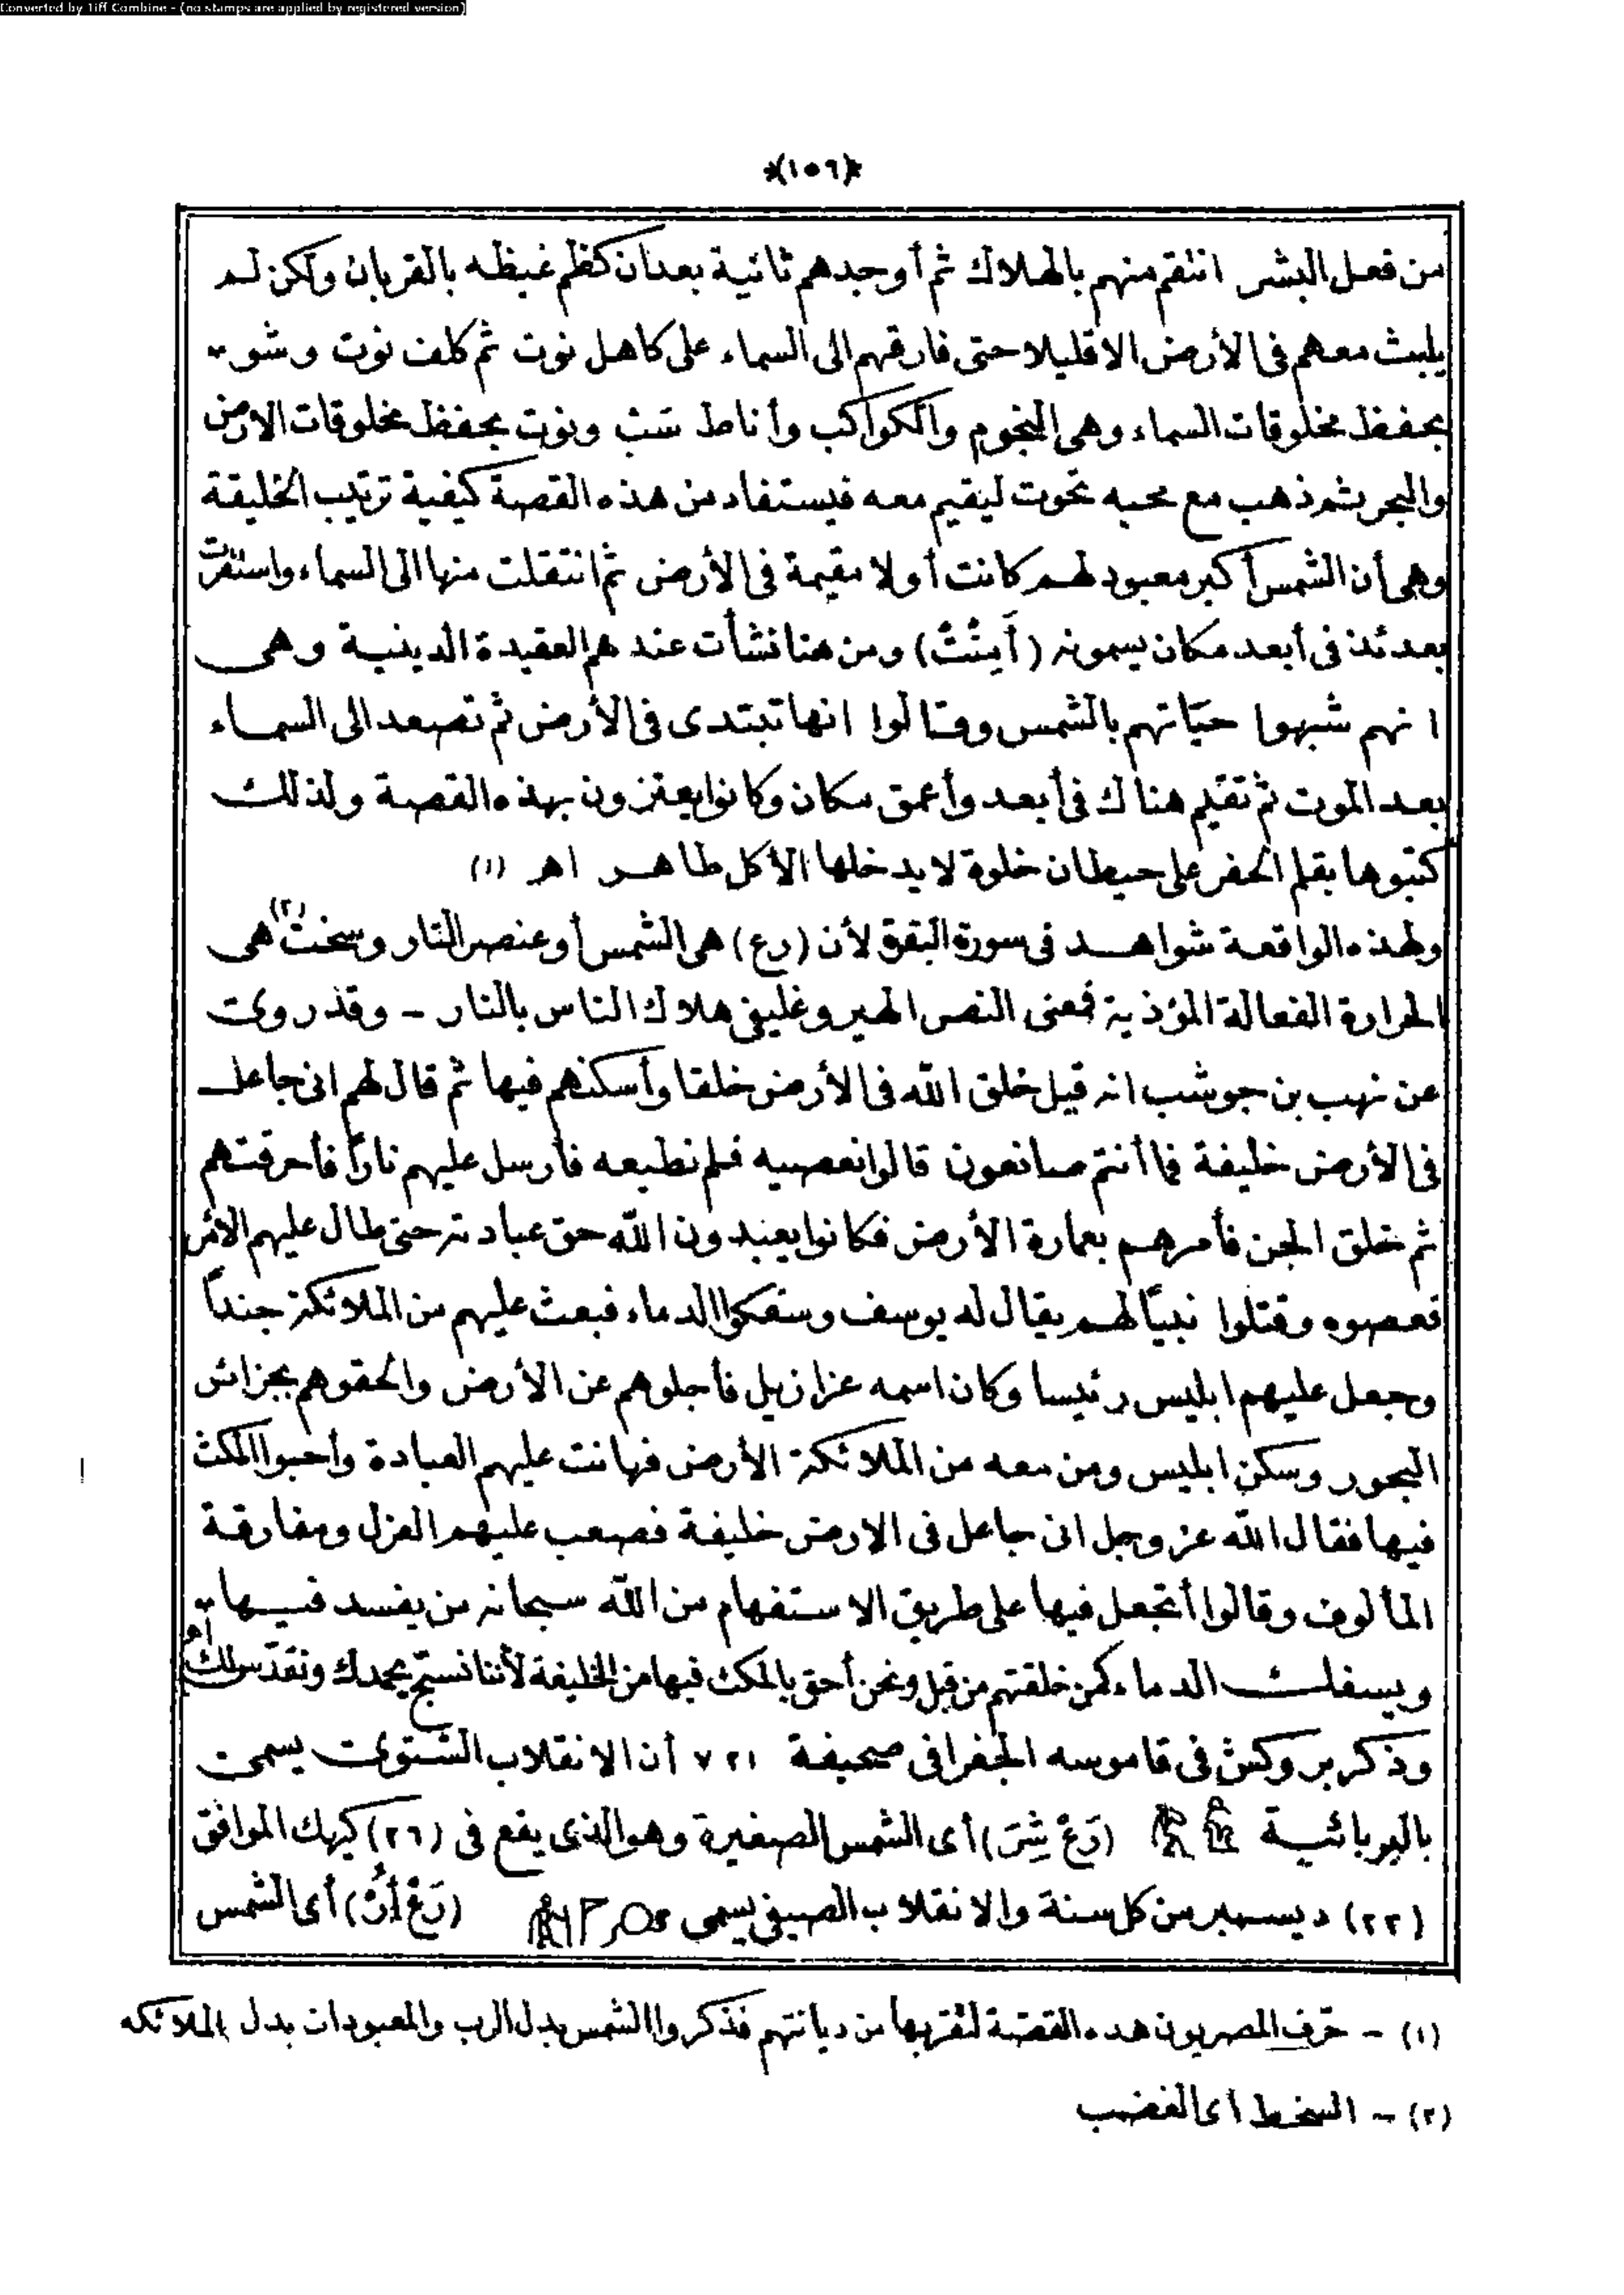 Converted by Tiff Combine - (no stamps are applied by registered version)
*(١٥٦)*
من فعل البشر انتقم منهم بالهلاك ثم أوجدهم ثانية بعدان كظم غيظه بالقربان ولكن لم
يلبث معهم فى الأرض الا قليلا حتى فارقهم الى السماء على كاهل نوت ثم كلف نوت وشو
بحفظ مخلوقات السماء وهى النجوم والكواكب وأناط سَبْ ونوت بحفظ مخلوقات الارض
والبحر ثم ذهب مع محبه تحوت ليقيم معه فيستفاد من هذه القصة كيفية ترتيب الخليقة
وهى أن الشمس أكبر معبود لهم كانت أولا مقيمة فى الأرض ثم انتقلت منها الى السماء واستقرت
بعدئذ فى أبعد مكان يسمونه (أَمِنْتْ) ومن هنا نشأت عندهم العقيدة الدينية وهى
انهم شبهوا حيَاتهم بالشمس وقالوا انها تبتدى فى الأرض ثم تصعد الى السماء
بعد الموت ثم تقيم هناك فى أبعد وأعمق مكان وكانوا يعتزون بهذه القصة ولذلك
كتبوها بقلم الحفر على حيطان خلوة لا يدخلها الا كل طاهر اهـ (١)
ولهذه الواقعة شواهد فى سورة البقرة لأن (رع) هى الشمس أو عنصر النار وسخت (٢) هى
الحرارة الفعالة المؤذية فمعنى النص الهيروغليفى هلاك الناس بالنار - وقد روى
عن نهب بن جوشب انه قيل خلق الله فى الأرض خلقا وأسكنهم فيها ثم قال لهم انى جاعل
فى الأرض خليفة فما أنتم صانعون قالوا نعصيه فلم نطيعه فأرسل عليهم ناراً فأحرقتهم
ثم خلق الجن فأمرهم بعمارة الأرض فكانوا يعبدون الله حق عبادته حتى طال عليهم الامر
فعصوه وقتلوا نبيًا لهم يقال له يوسف وسفكوا الدماء فبعث عليهم من الملائكة جنداً
وجعل عليهم ابليس رئيسا وكان اسمه عزازيل فأجلوهم عن الأرض والحقوهم بجزائر
البحور وسكن ابليس ومن معه من الملائكة الأرض فهانت عليهم العبادة وأحبوا المكث
فيها فقال الله عز وجل انى جاعل فى الارض خليفة فصعب عليهم العزل ومفارقة
المألوف وقالوا أتجعل فيها على طريق الاستفهام من الله سبحانه من يفسد فيها
ويسفك الدماء كمن خلقتهم من قبل ونحن أحق بالمكث فيها من الخليفة لأننا نسبح بحمدك ونقدس لك اهـ
وذكر بروكش فى قاموسه الجغرافى صحيفة ٧٢١ أن الانقلاب الشتوى يسمى
بالبربائية (رَعْ شِرَ) أى الشمس الصغيرة وهو الذى يقع فى (٢٦) كيهك الموافق
(٢٢) ديسمبر من كل سنة والانقلاب الصيفى يسمى (رَعْ أُرْ) أى الشمس
(١) - حرّف المصريون هذه القصة لتقربها من ديانتهم فذكروا الشمس بدل الرب والمعبودات بدل الملائكه
(٢) - السخط اى الغضب